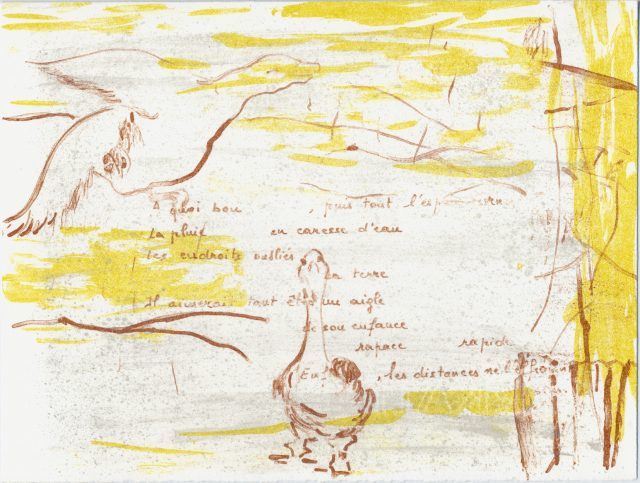 A quoi bon , puis tout l'esp
La pluie en caresse d'eau
Les endroits oubliés
la terre
Il aimerait tant être un aigle
de son enfance
rapace rapide
, les distances ne l'